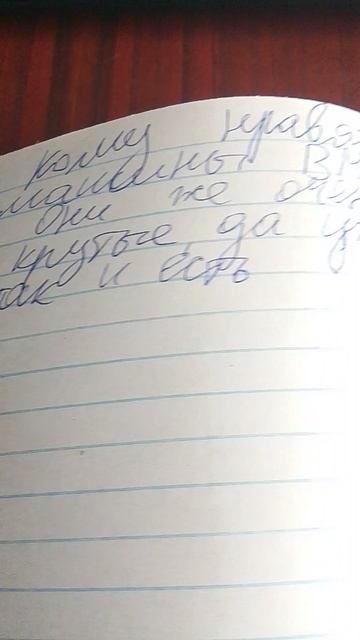 кому нравя
машины ВМ
они же оче
крутые, да и
так и есть